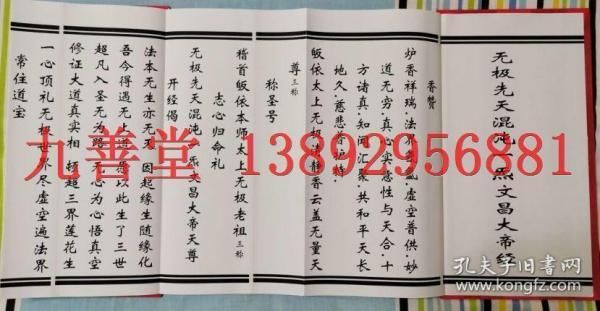 无极先天混沌一炁文昌大帝经
香赞
炉香祥瑞·法界
虚空普供·妙
道无穷·真心实意性与天合·十
方诸真·知闻汇聚·共和平天长
地久·慈悲普护持·
称圣号
皈依太上无极清静香云盖无量天
尊三称
稽首皈依本师太上无极老祖三称
志心归命礼
无极先天混沌一炁文昌大帝天尊
开经偈
法本无生亦无灭 因起缘生随缘化
吾今得遇无
以此生了三世
超凡入圣无为路 无心为心悟真空
修证大道真实相 顿超三界莲花生
一心顶礼无极世界尽虚空遍法界
常住道宝
九善堂 13892956881
孔夫子旧书网
www.kongfz.com